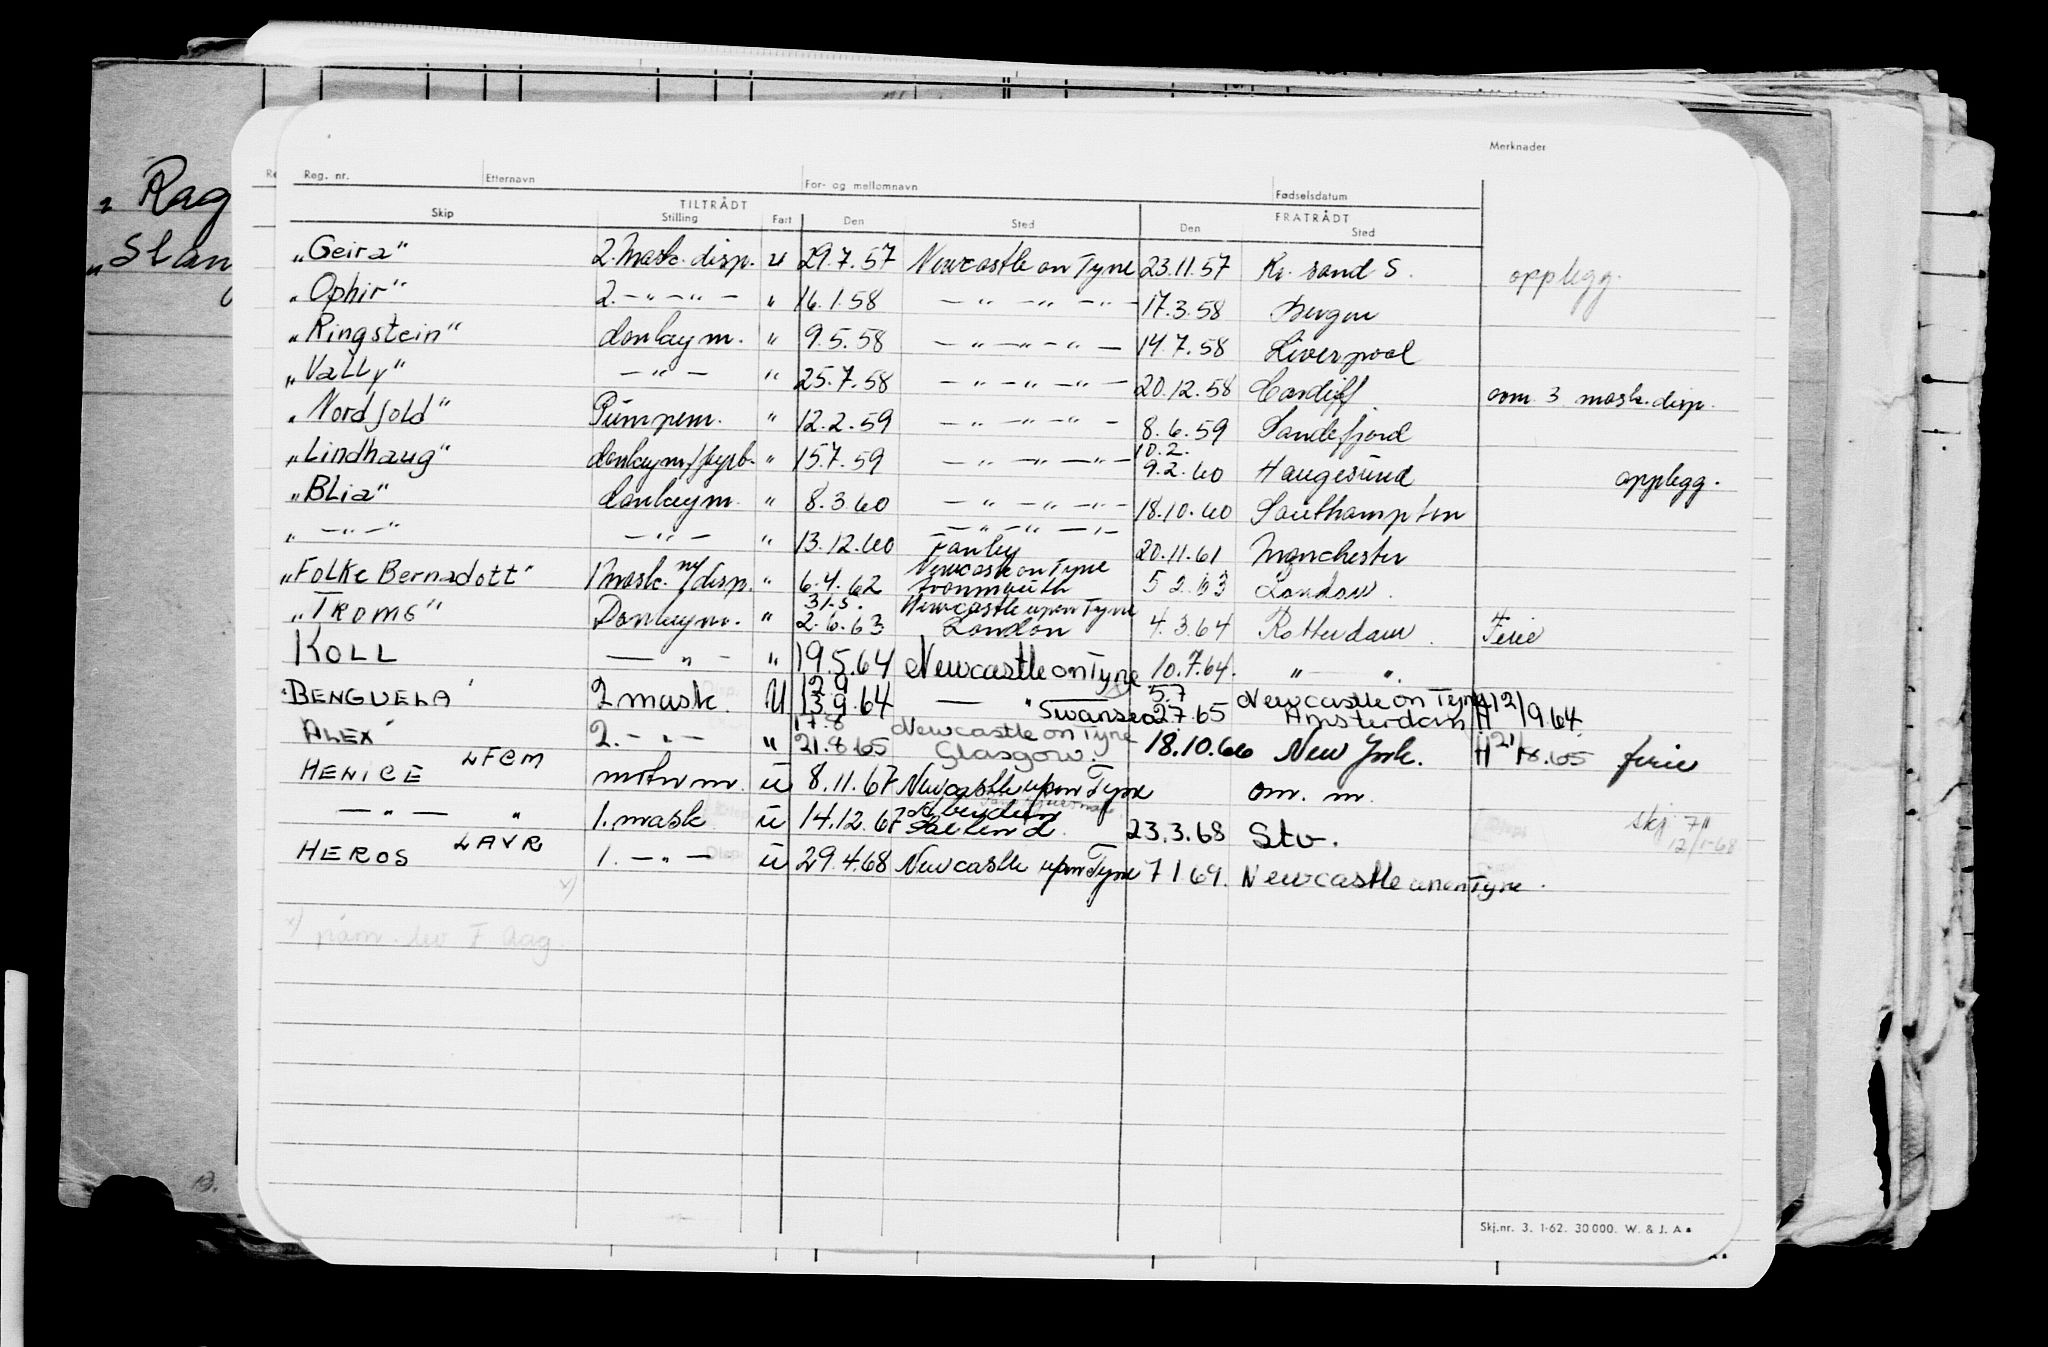 Merknader
Reg. nr. Etternavn For- og mellomnavn Fødselsdatum
TILTRÅDT FRATRÅDT
Skip Stilling Fart Den Sted Den Sted
"Geira" 2. mask. disp. u 29.7.57 Newcastle on Tyne 23.11.57 Kr. sand S. opplegg.
"Ophir" 2. - " - " - " 16.1.58 - " - " - " - 17.3.58 Bergen
"Ringstein" donkeym. " 9.5.58 - " - " - " - 14.7.58 Liverpool
"Vally" - " - " 25.7.58 - " - " - " - 20.12.58 Cardiff som 3 mask. disp.
"Nordfold" Pumpem. " 12.2.59 - " - " - " - 8.6.59 Sandefjord
10.2.
"Lindhaug" donkeym/fyrb. " 15.7.59 - " - " - " - 9.2.60 Haugesund opplegg.
"Blia" donkeym. " 8.3.60 - " - " - " - 18.10.60 Southampton
- " - " - " - " -
" - " - " - " - " 13.12.60 20.11.61 Manchester
Newcastle on Tyne
"Folke Bernadott" 1 mask. m/disp. " 6.4.62 Avonmouth 5.2.63 London.
31.5. Newcastle upon Tyne
"Troms" Donkeym. " 2.6.63 London 4.3.64 Rotterdam. Ferie
KOLL - " - " 19.5.64 Newcastle on Tyne 10.7.64. " - "
12.9 5.7 Newcastle on Tyne
"BENGUELA" 2 mask. U 13.9.64 - " Swansea 27.65 Amsterdam H 12/9 64
17.8 Newcastle on Tyne
ALEX 2. - " - " 21.8.65 Glasgow. 18.10.66 New York. H 21/8.65 ferie
HENICE LFCM motorm. u 8.11.67 Newcastle upon Tyne om. m.
Aberdeen
- " - " 1. mask u 14.12.67 23.3.68 Stv. skj 7/1 12/1-68
HEROS LAVR 1. - " - u 29.4.68 Newcastle upon Tyne 7 1 69. Newcastle upon Tyne.
x)
x)
Rag
"Slan
Skj.nr. 3. 1-62. 30 000. W. & J. A.